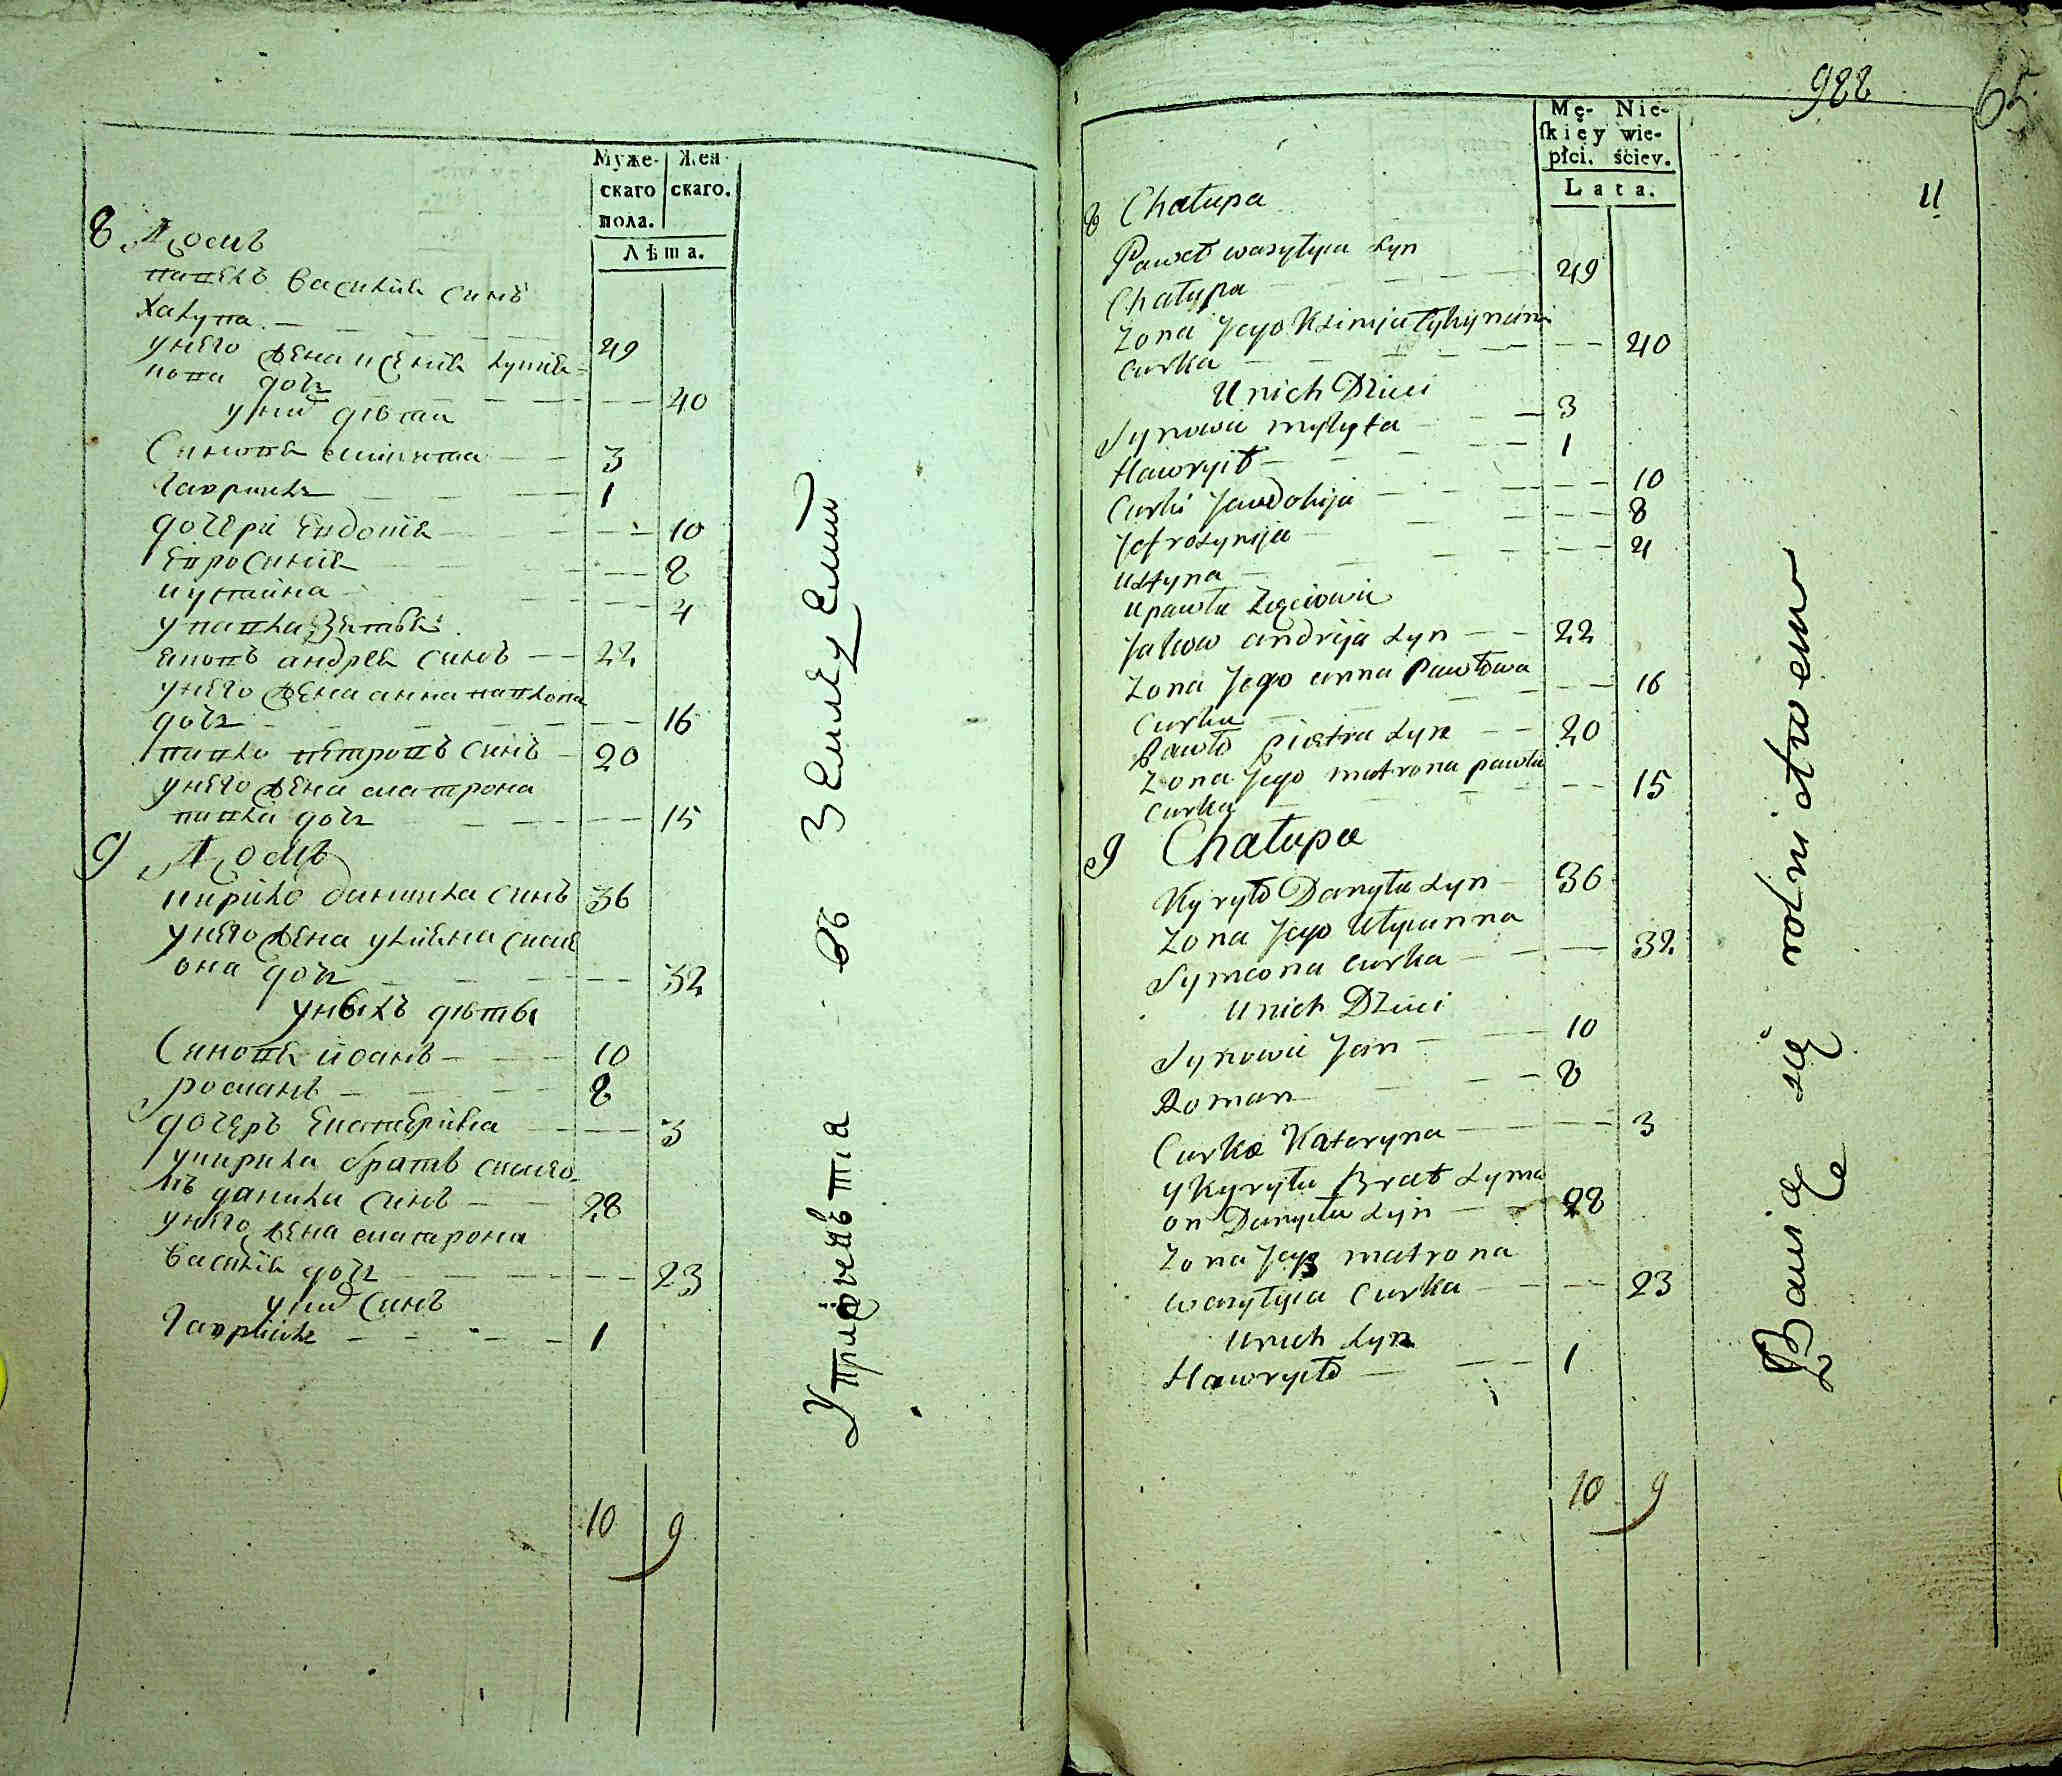 Муже-
скаго
пола.
Жен-
скаго.
Лѣта.
8 Домъ
павелъ василия синъ
халупа 49
у него жена
дочь 40
у них дѣти
Синовя микита 3
гаврило 1
дочери Евдокия 10
Ефросиния 8
иустина 4
у павла зятья
яковъ андрея синъ 22
у него жена анна павлова
дочь 16
павло петровъ синъ 20
у него жена матрона
павла дочь 15
9 Домъ
кирило данила синъ 36
у него жена улияна симе
она дочь 32
у ныхъ дѣты
Синовя иоанъ 10
романъ 8
дочеръ Екатерина 3
у кирила братъ симео-
нъ данила синъ 28
у него жена матрона
василия дочь 23
у них синъ
гаврило 1
10 9
Упражняется въ земледелии
988
65
11
Mę-
skiéy
płci.
Nie-
wie-
ściey.
Lata.
8 Chałupa
Paweł wasylyia syn
Chałupa 49
Zona Jego
Curka 40
U nich Dzieci
Synowie mykyta 3
Hawryło 1
Curki Jawdokija 10
Jefrosynija 8
Ustyna 4
u pawła Zięciowie
Jakow andrija syn 22
Zona Jego anna Pawłowa
Curka 16
Pawło Piotra syn 20
Zona Jego matrona pawła
Curka 15
9 Chałupa
Kyryło Danyła syn 36
Zona Jego Ulyianna
Symeona curka 32
U nich Dzieci
Synowie Jan 10
Roman 8
Curka Kateryna 3
y Kyryła Brat Syme
on Danyła syn 28
Zona Jego matrona
wasylyia Curka 23
U nich syn
Hawryło 1
10 9
Bawią się rolnictwem